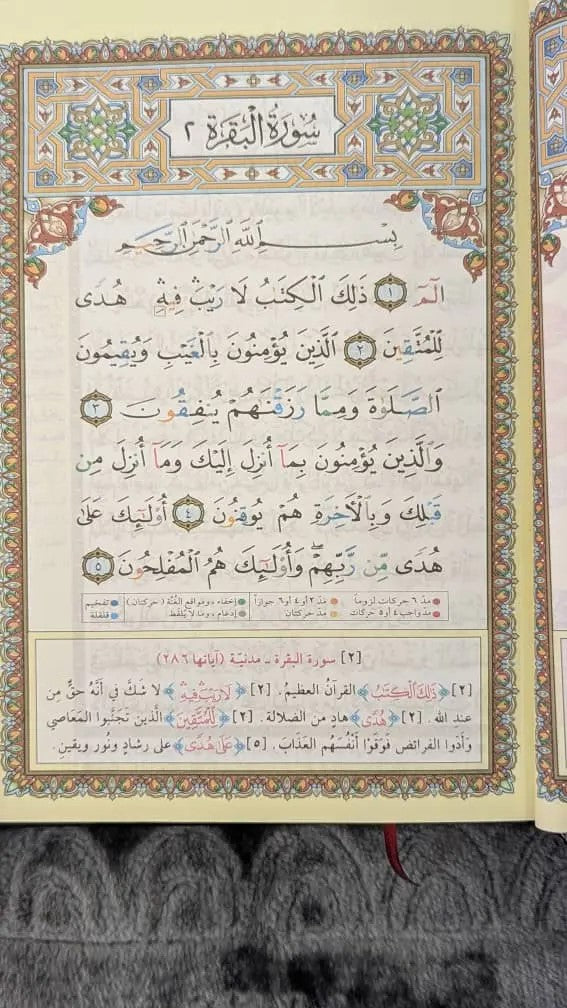 سُورَةُ الْبَقَرَةِ ٢
بِسْمِ اللَّهِ الرَّحْمَٰنِ الرَّحِيمِ
الٓمٓ ١ ذَٰلِكَ الْكِتَٰبُ لَا رَيْبَ ۛ فِيهِ ۛ هُدًى
لِّلْمُتَّقِينَ ٢ الَّذِينَ يُؤْمِنُونَ بِالْغَيْبِ وَيُقِيمُونَ
الصَّلَوٰةَ وَمِمَّا رَزَقْنَٰهُمْ يُنفِقُونَ ٣
وَالَّذِينَ يُؤْمِنُونَ بِمَآ أُنزِلَ إِلَيْكَ وَمَآ أُنزِلَ مِن
قَبْلِكَ وَبِالْآخِرَةِ هُمْ يُوقِنُونَ ٤ أُو۟لَٰٓئِكَ عَلَىٰ
هُدًى مِّن رَّبِّهِمْ ۖ وَأُو۟لَٰٓئِكَ هُمُ الْمُفْلِحُونَ ٥
مدّ ٦ حركات لزوماً مدّ ٢ أو ٤ أو ٦ جوازاً إخفاء، ومواقع الغُنَّة (حركتان) تفخيم
مدّ واجب ٤ أو ٥ حركات مدّ حركتان إدغام، وما لا يُلفَظ قلقلة
[٢] سورة البقرة ـ مدنيّة (آياتها ٢٨٦)
[٢] ﴿ذَٰلِكَ الْكِتَٰبُ﴾ القرآنُ العظيمُ. [٢] ﴿لَا رَيْبَ ۛ فِيهِ﴾ لا شكَّ في أنَّهُ حقٌّ مِن
عند الله. [٢] ﴿هُدًى﴾ هادٍ من الضلالة. [٢] ﴿لِّلْمُتَّقِينَ﴾ الَّذين تَجَنَّبوا المَعاصي
وأدَّوا الفرائضَ فوَقَوْا أَنْفُسَهُم العَذابَ. [٥] ﴿عَلَىٰ هُدًى﴾ على رشادٍ ونُورٍ ويقينٍ.